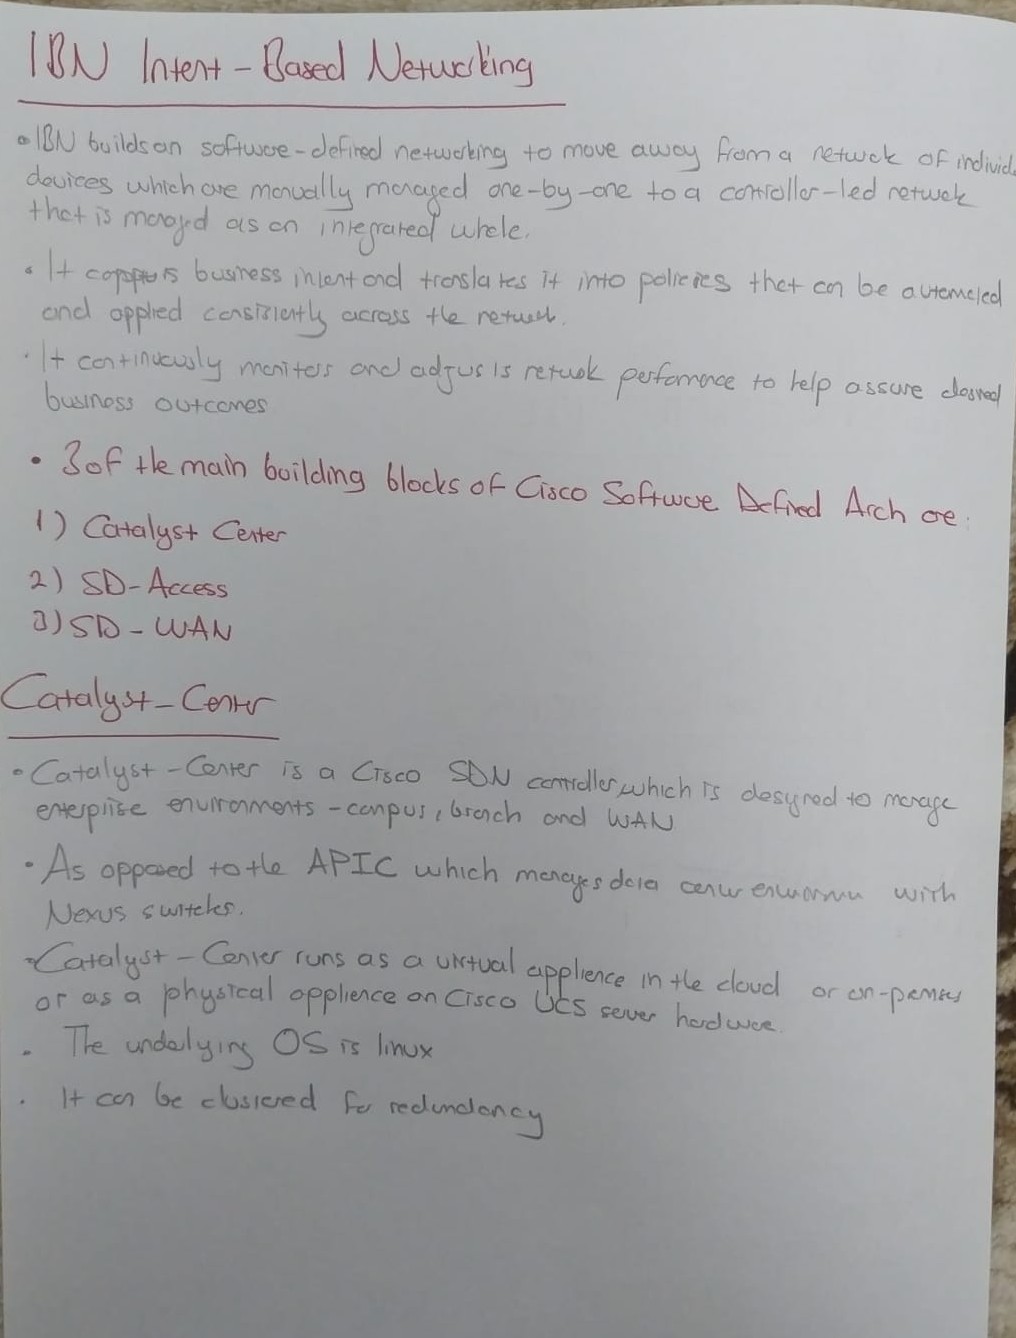 IBN Intent-Based Networking
• IBN builds on software-defined networking to move away from a network of individ
devices which are manually managed one-by-one to a controller-led network
that is managed as an integrated whole.
• It captures business intent and translates it into policies that can be automated
and applied consistently across the network.
• It continuously monitors and adjusts network performance to help assure desired
business outcomes
• 3 of the main building blocks of Cisco Software Defined Arch are:
1) Catalyst Center
2) SD-Access
3) SD-WAN
Catalyst-Center
• Catalyst-Center is a Cisco SDN controller which is designed to manage
enterprise environments - campus, branch and WAN
• As opposed to the APIC which manages data center environment with
Nexus switches.
• Catalyst-Center runs as a virtual applience in the cloud or on-premises
or as a physical applience on Cisco UCS server hardware.
• The underlying OS is linux
• It can be clustered for redundancy